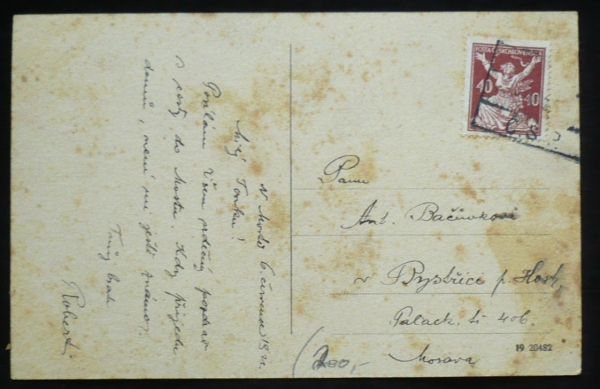 POŠTA ČESKOSLOVENSKÁ
40 40
Č. S.
V Mostě 6. července 1921.
Milý Toníku!
Posílám Vám srdečný pozdrav
z cesty do Mostu. Kdy přijedu
domů, není mi ještě známo.
Tvůj bratr
Robert.
Panu
Ant. Bačůvkovi
v Bystřice p. Host.
Palack. tř. 406.
Morava
200,-
19 20482